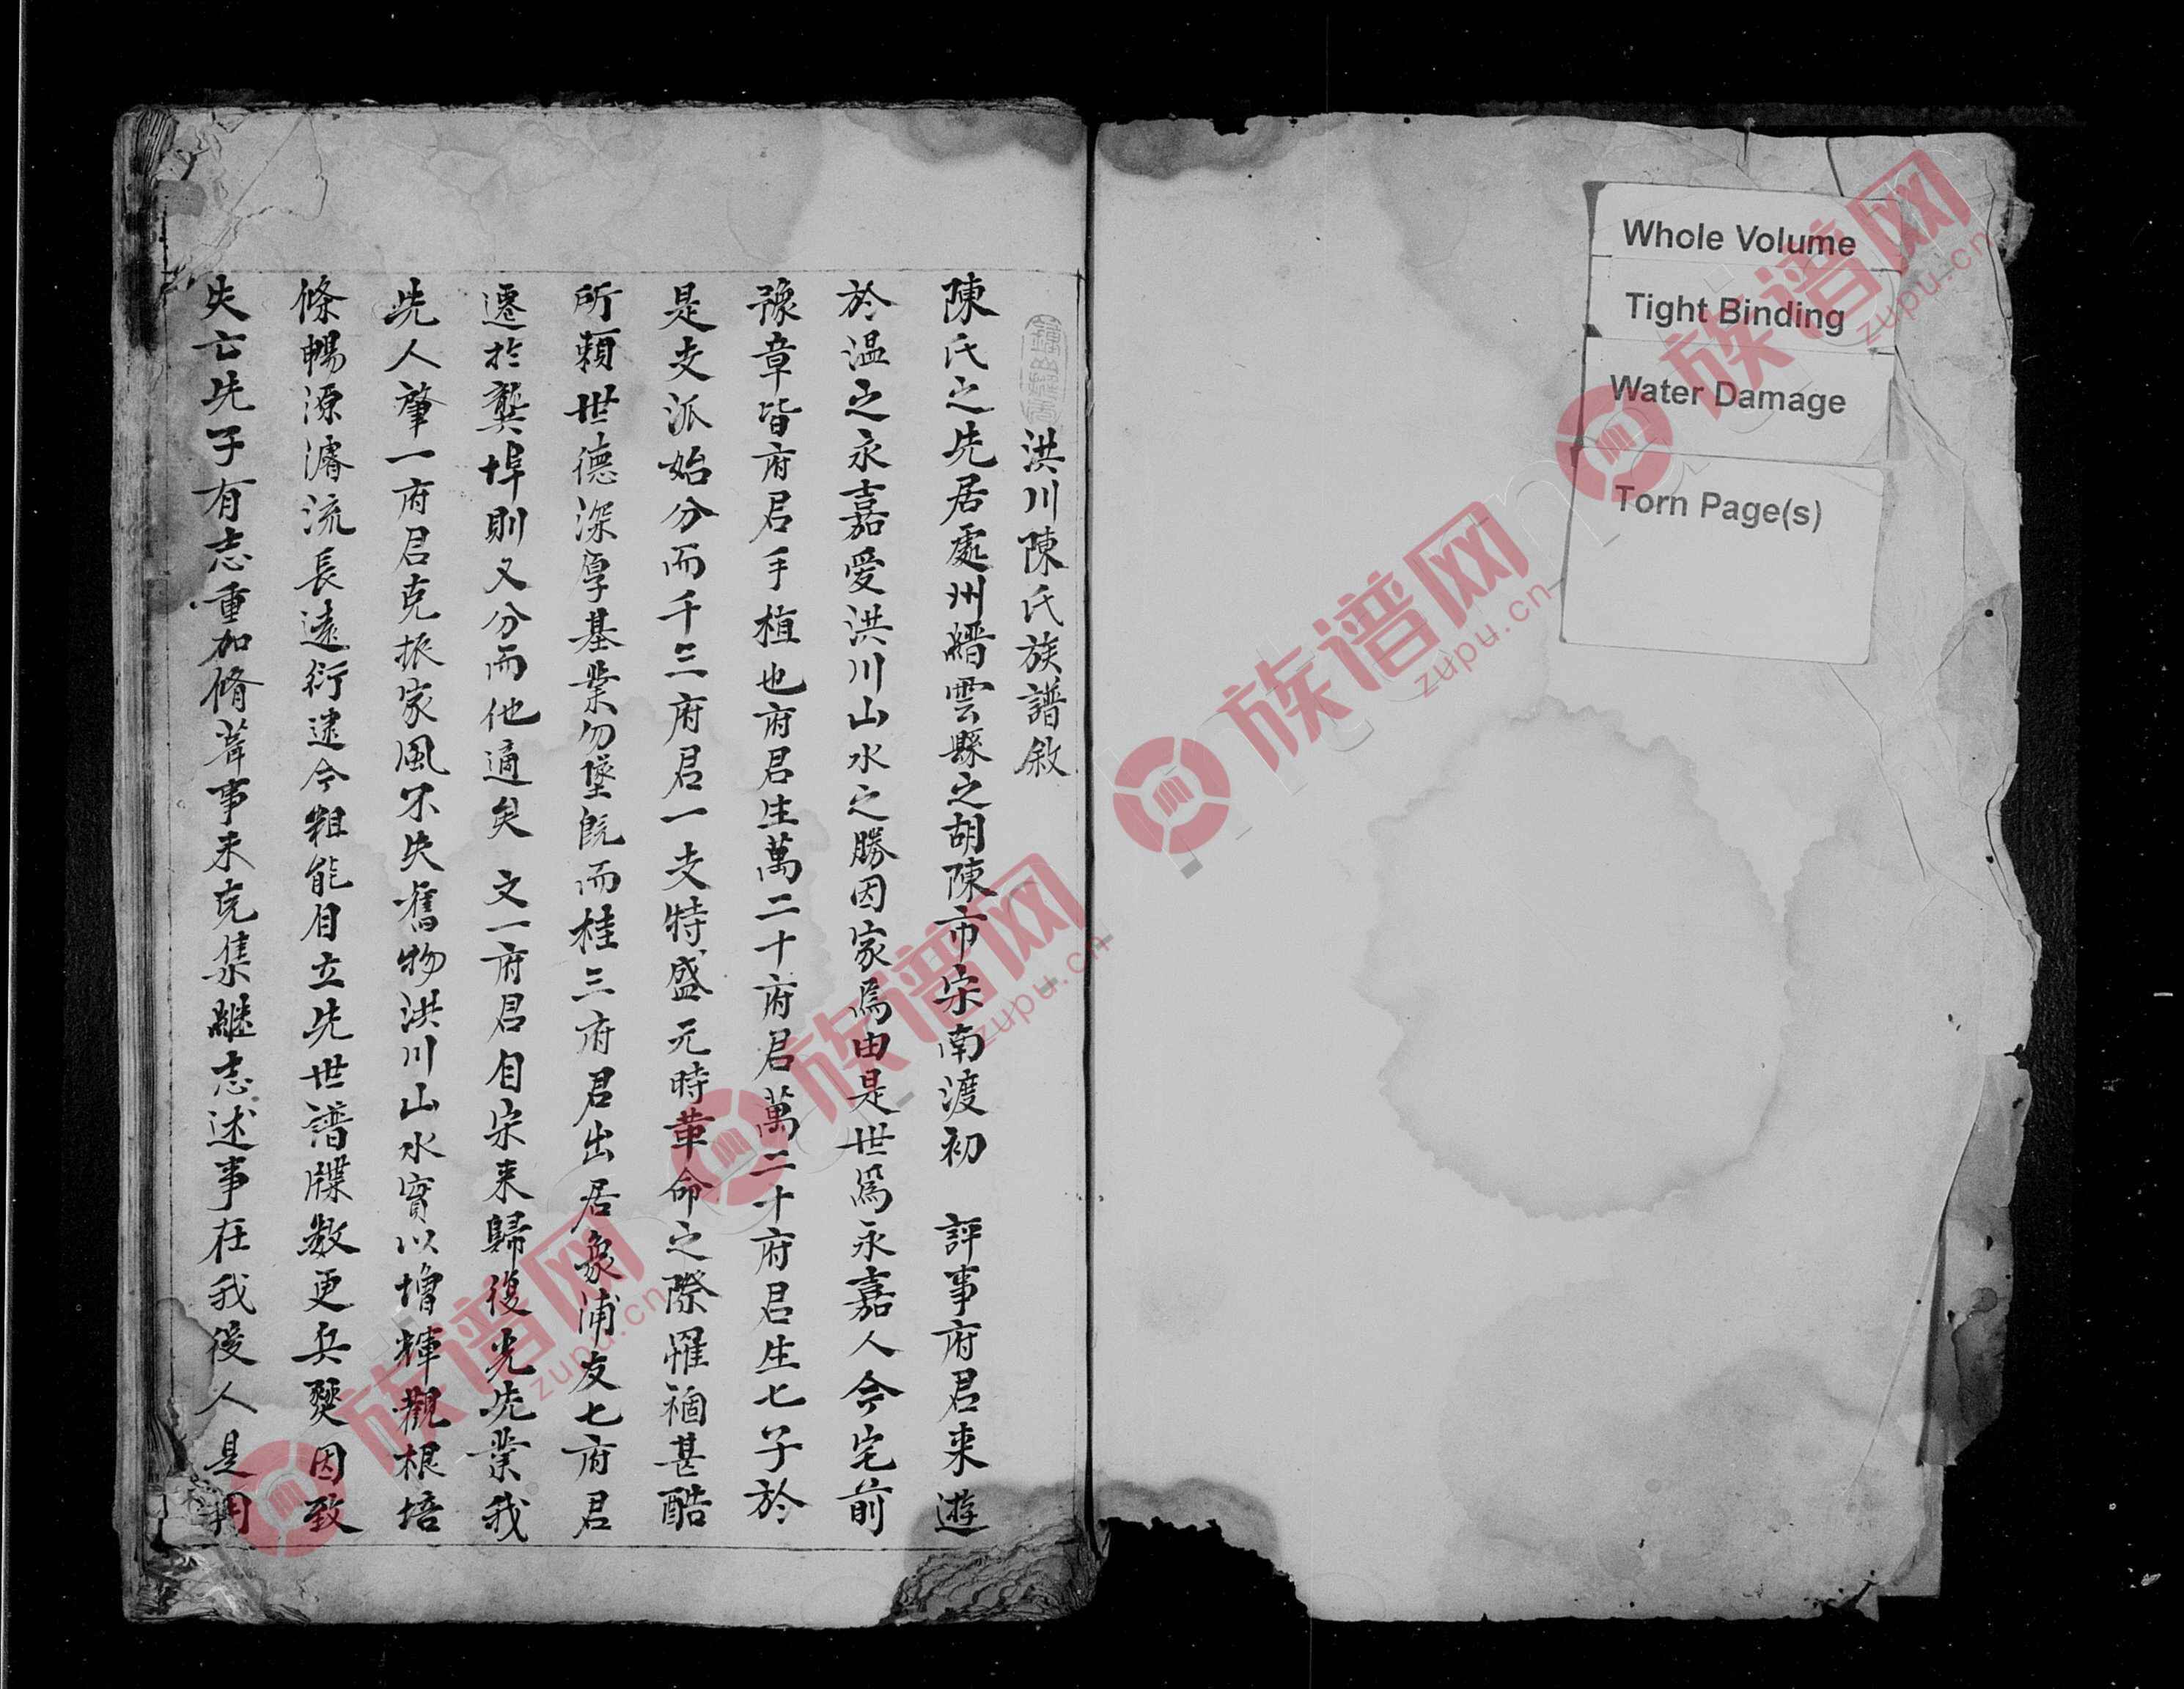 Whole Volume
Tight Binding
Water Damage
Torn Page(s)
洪川陳氏族譜敘
陳氏之先居處州縉雲縣之胡陳市宋南渡初 評事府君來遊
於温之永嘉愛洪川山水之勝因家焉由是世為永嘉人今宅前
豫章皆府君手植也府君生萬二十府君萬二十府君生七子於
是支派始分而千三府君一支特盛元時革命之際罹禍甚酷
所賴世德深厚基業勿墜既而桂三府君出居象浦友七府君
遷於龔埠則又分而他適矣 文一府君自宋來歸復光先業我
先人肇一府君克振家風不失舊物洪川山水實以增輝觀根培
條暢源濬流長遠衍逮今粗能自立先世譜牒數更兵燹因致
失亡先子有志重加脩葺事未克集繼志述事在我後人是用
族谱网
zupu.cn
族谱网
zupu.cn
族谱网
zupu.cn
族谱网
zupu.cn